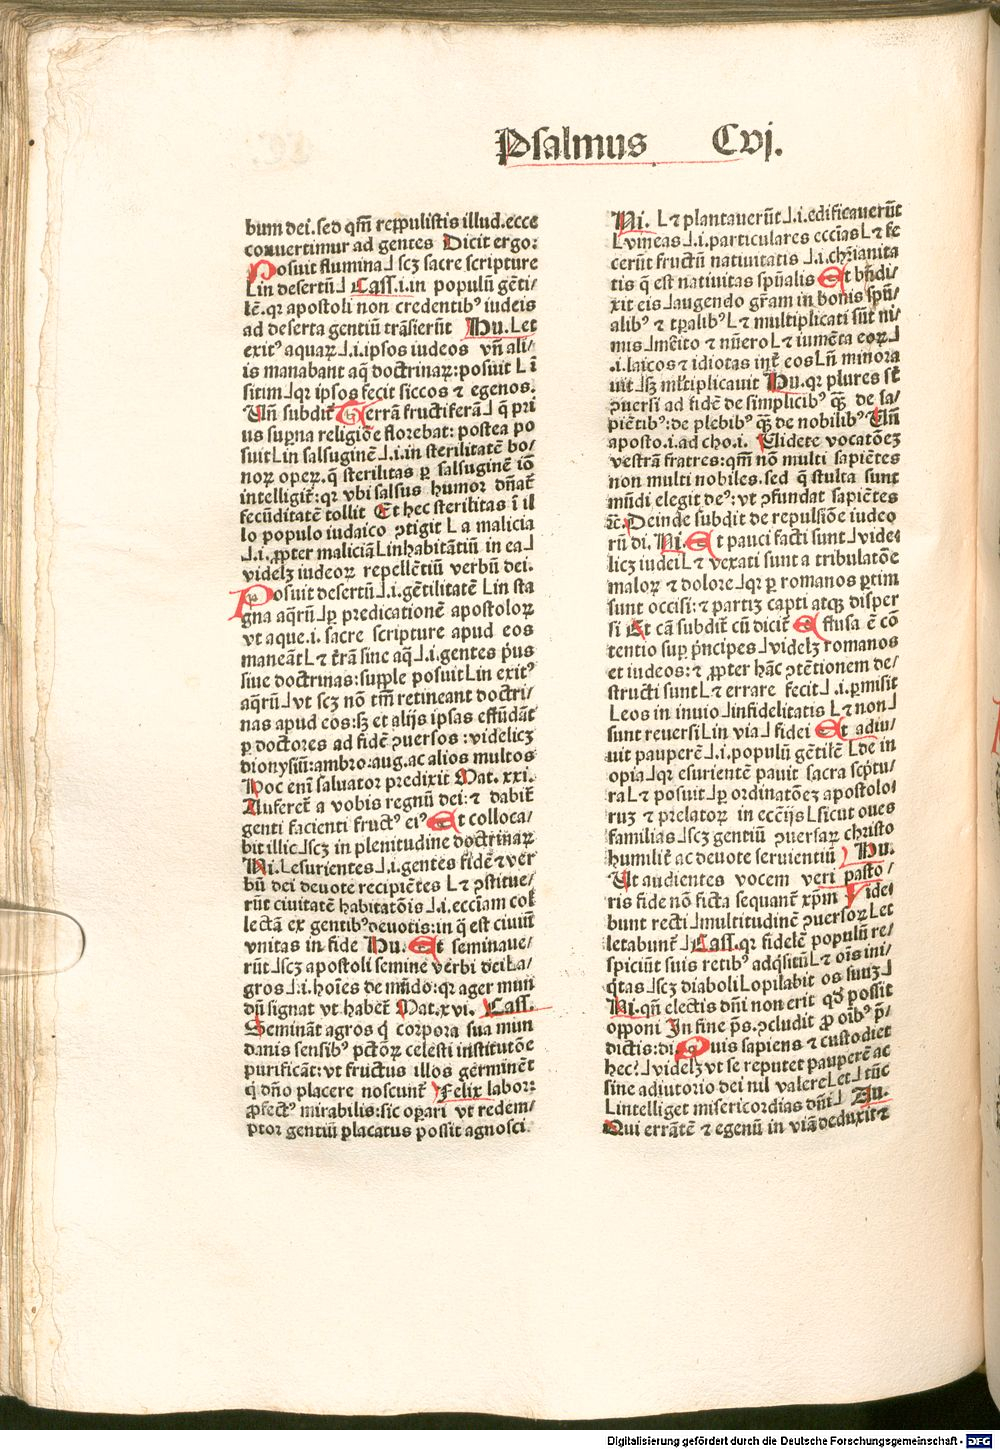 Psalmus Cvj.
bum dei. sed qm̄ reppulistis illud. ecce
conuertimur ad gentes Dicit ergo:
Posuit flumina⅃ scꝫ sacre scripture
Lin desertū⅃ Cass. i. in populū gēti/
lē. qꝛ apostoli non credentibꝰ iudeis
ad deserta gentiū trāsierūt Hu. Let
exitꝰ aquaꝝ⅃. i. ipsos iudeos vn̄ ali/
is manabant aq̄ doctrinaꝝ: posuit L ī
sitim⅃qꝛ ipsos fecit siccos ⁊ egenos.
Un̄ subdit̄ Terrā fructiferā⅃ q̄ pri
us sup̄na religiōe florebat: postea po
suit Lin salsuginē⅃. i. in sterilitatē bo/
noꝝ opeꝝ. q̄ sterilitas ꝑ salsuginē iō
intelligit̄: qꝛ vbi salsus humor dn̄at̄
fecūditatē tollit Et hec sterilitas ī il
lo populo iudaico ꝯtigit L a malicia
⅃. i. ꝓpter maliciā Linhabitātiū in ea⅃
videlꝫ iudeoꝝ repellētiū verbū dei.
Posuit desertū⅃. i. gētilitatē Lin sta
gna aq̄rū⅃ꝑ predicationē apostoloꝝ
vt aque. i. sacre scripture apud eos
maneāt L ⁊ t̄rā sine aq̄⅃. i. gentes p̄us
siue doctrinas: supple posuit Lin exitꝰ
aq̄rū⅃ vt scꝫ nō tm̄ retineant doctri/
nas apud eos: sꝫ et alijs ipsas effūdāt
ꝑ doctores ad fidē ꝯuersos: videlicꝫ
dionysiū: ambro: aug. ac alios multos
Hoc eni saluator predixit Mat. xxi.
Auferet̄ a vobis regnū dei: ⁊ dabit̄
genti facienti fructꝰ eiꝰ Et colloca/
bit illic⅃scꝫ in plenitudine doctrinaꝝ
Ni. Lesurientes⅃. i. gentes fidē ⁊ ver
bū dei deuote recipiētes L ⁊ ꝯstitue/
rūt ciuitatē habitatōis⅃. i. ecciam col
lectā ex gentibꝰ deuotis: in q̄ est ciuiū
vnitas in fide Hu. Et seminaue/
rūt⅃scꝫ apostoli semine verbi dei La/
gros⅃. i. hoīes de mūdo: qꝛ ager mun
dū signat vt habet̄ Mat. xvi. Cass.
Semināt agros q̄ corpora sua mun
danis sensibꝰ pctōꝝ celesti institutōe
purificāt: vt fructus illos germinēt
q̄ dn̄o placere noscunt̄ Felix labor:
ꝓfectꝰ mirabilis: sic opari vt redem/
ptor gentiū placatus possit agnosci.
Ni. L ⁊ plantauerūt⅃. i. edificauerūt
Lvineas⅃. i. particulares eccias L ⁊ fe
cerūt fructū natiuitatis ⅃. i. chr̄ianita
tis q̄ est natiuitas spūalis Et bn̄di/
xit eis⅃augendo gr̄am in bonis spū/
alibꝰ ⁊ tp̄alibꝰ L ⁊ multiplicati sūt ni/
mis⅃mēito ⁊ nūero L ⁊ iumēta eoꝝ⅃
. i. laicos ⁊ idiotas int̄ eos Ln̄ minora
uit⅃sꝫ mltiplicauit Hu. qꝛ plures st̄
ꝯuersi ad fidē de simplicibꝰ qꝫ de sa/
piētibꝰ: de plebibꝰ qꝫ de nobilibꝰ Un̄
aposto. i. ad cho. i. Uidete vocatōeꝫ
vestrā fratres: qm̄ nō multi sapiētes
non multi nobiles. sed q̄ stulta sunt
mūdi elegit deꝰ: vt ꝯfundat sapiētes
⁊c̄. Deinde subdit de repulsiōe iudeo
rū di. Ni. Et pauci facti sunt⅃vide
licꝫ iudei L ⁊ vexati sunt a tribulatōe
maloꝝ ⁊ dolore⅃qꝛ ꝑ romanos ꝑtim
sunt occisi: ⁊ partiꝫ capti atqꝫ disper
si Et cā subdit̄ cū dicit̄ Effusa ē cō
tentio suꝑ p̄ncipes⅃videlꝫ romanos
et iudeos: ⁊ ꝓpter hāc ꝯtētionem de/
structi sunt L ⁊ errare fecit⅃. i. ꝑmisit
Leos in inuio⅃infidelitatis L ⁊ non⅃
sunt reuersi Lin via⅃ fidei Et adiu/
uit pauperē⅃. i. populū gētilē Lde in
opia⅃qꝛ esurientē pauit sacra scp̄tu/
ra L ⁊ posuit⅃ꝑ ordinatōeꝫ apostolo
ruꝫ ⁊ prelatoꝝ in ecc̄ijs Lsicut oues
familias⅃scꝫ gentiū ꝯuersaꝝ christo
humilit̄ ac deuote seruientiū Hu.
Ut audientes vocem veri pasto/
ris fide nō ficta sequant̄ xp̄m Vide
bunt recti⅃multitudinē ꝯuersoꝝ Let
letabunt̄⅃Cass. qꝛ fidelē populū re/
spiciūt suis retibꝰ adq̄sitū L ⁊ oīs ini/
q̄tas⅃scꝫ diaboli Lopilabit os suuꝫ⅃
Ni. qn̄ electis dn̄i non erit qd̄ possit
opponi In fine p̄s. ꝯcludit ꝓ oībꝰ p̄/
dictis: di. Quis sapiens ⁊ custodiet
hec?⅃videlꝫ vt se reputet pauperē ac
sine adiutorio dei nil valere Let⅃tūc
Lintelliget misericordias dn̄i⅃ Au.
Qui errātē ⁊ egenū in viā deduxit ⁊
Digitalisierung gefördert durch die Deutsche Forschungsgemeinschaft - DFG